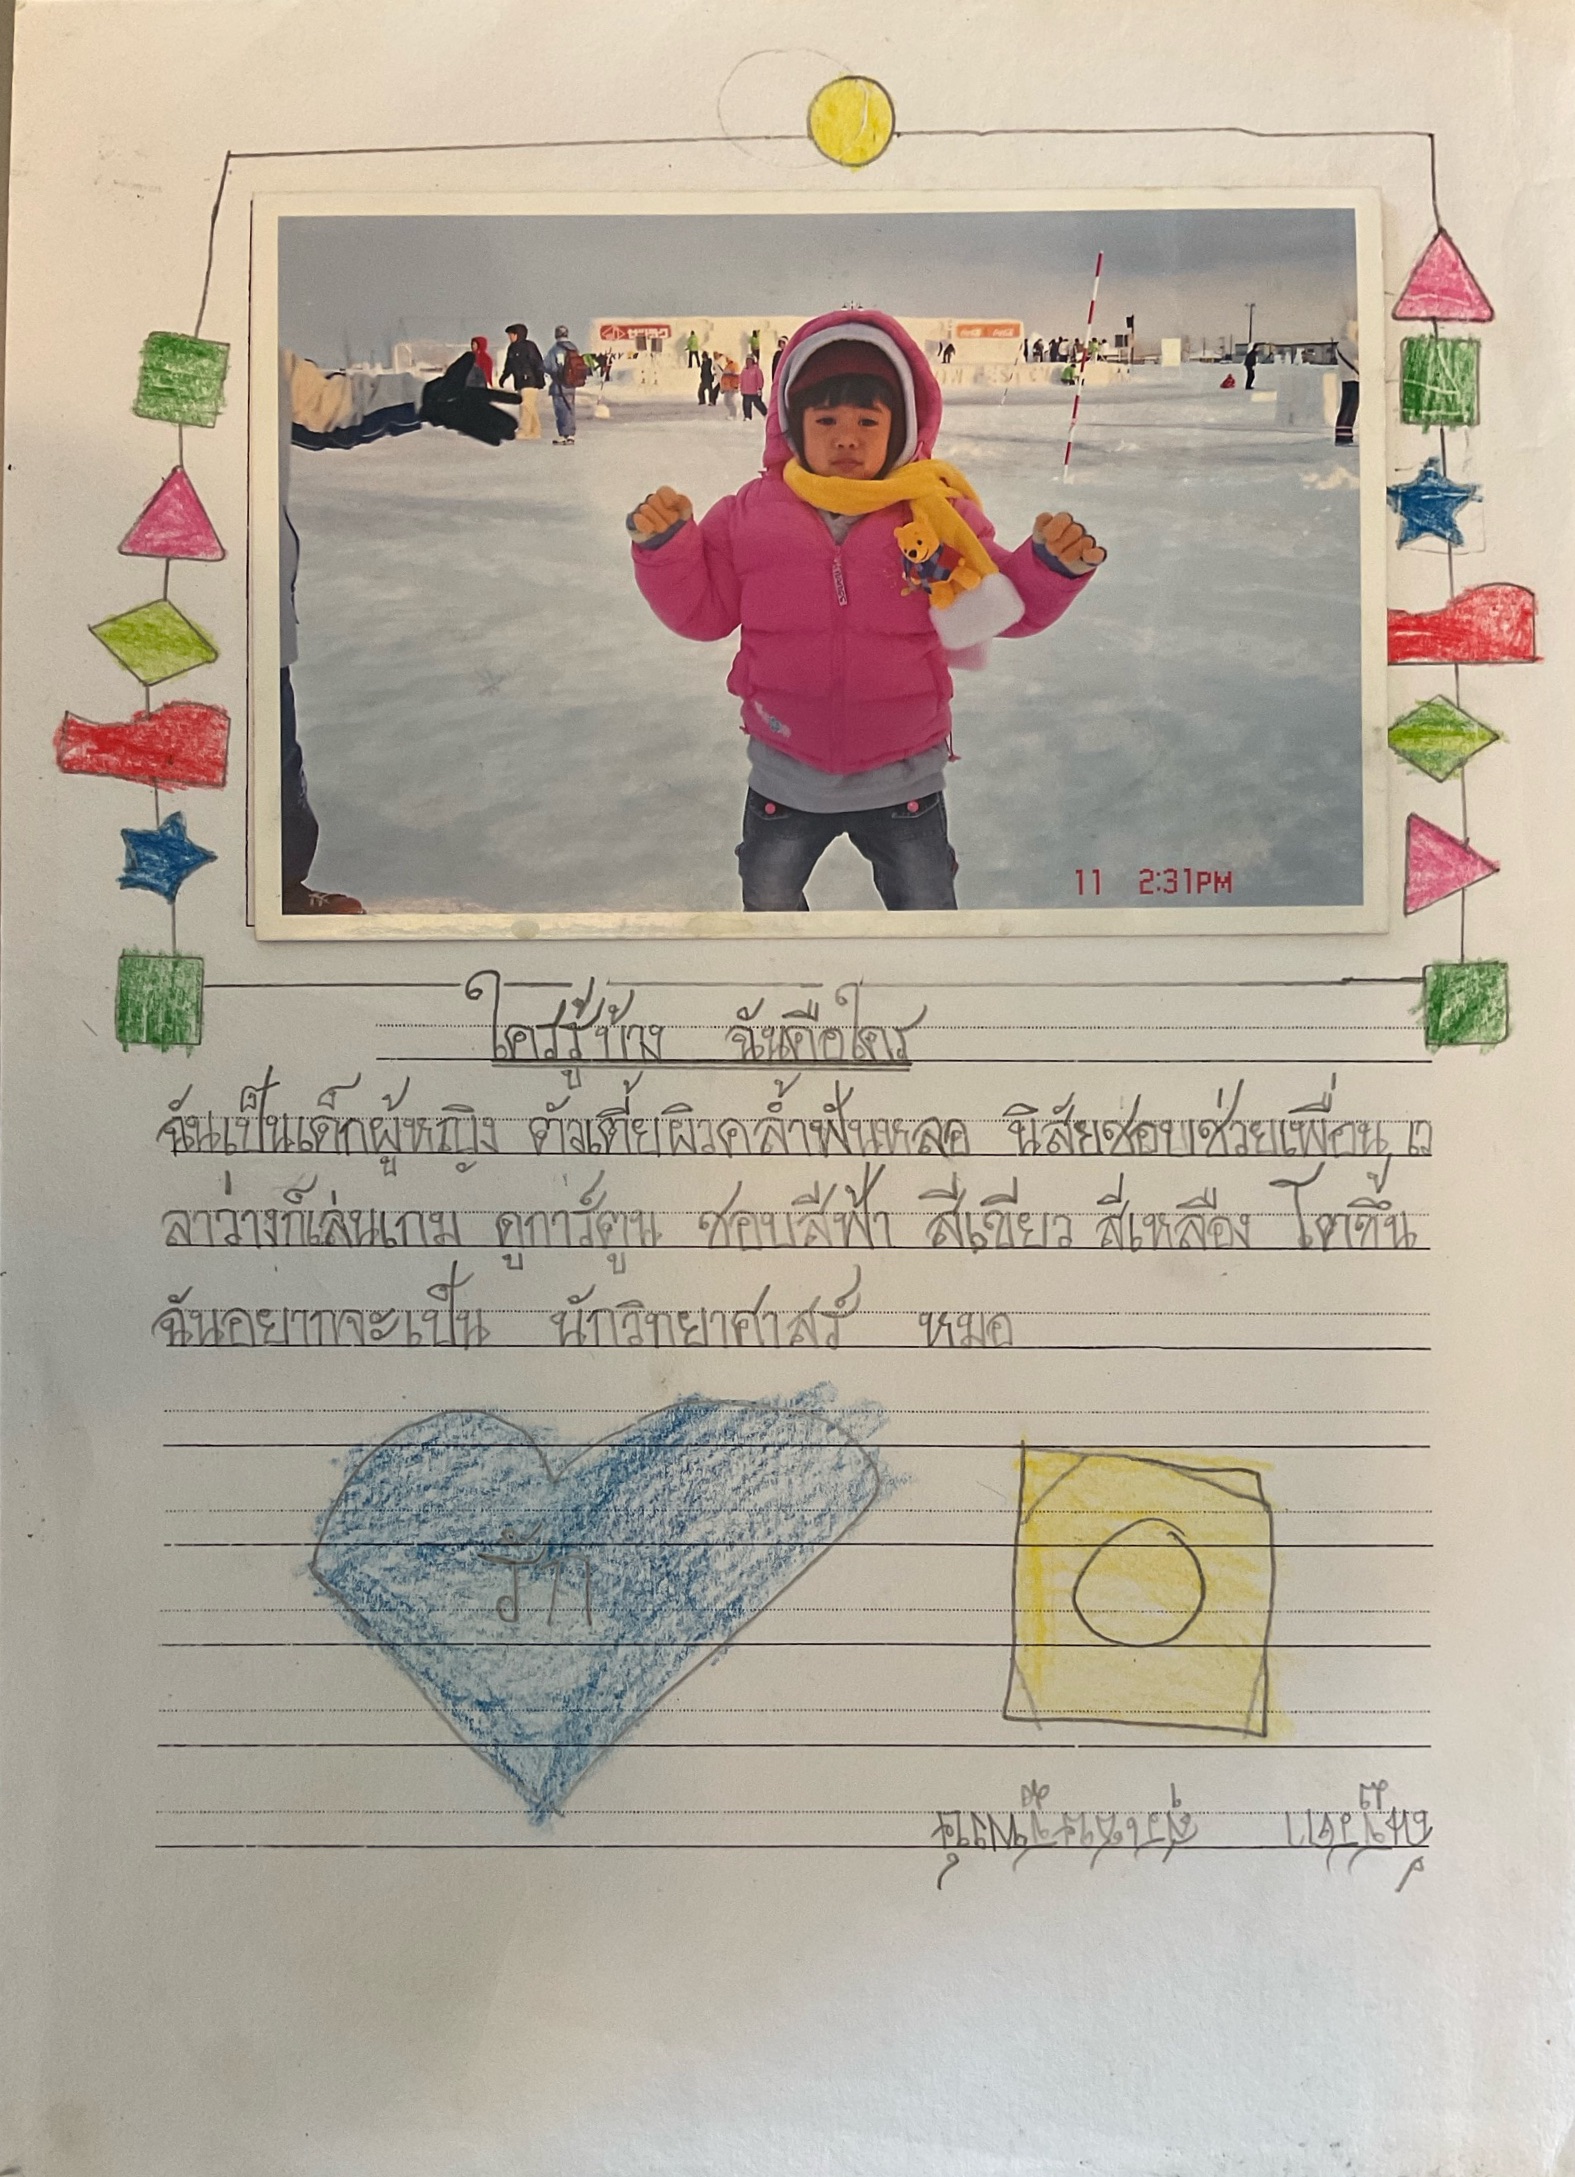 サッポロ
11 2:31PM
ใครรู้บ้าง ฉันคือใคร
ฉันเป็นเด็กผู้หญิง ตัวเตี้ยผิวคล้ำฟันหลอ นิสัยชอบช่วยเพื่อน เว
ลาว่างก็เล่นเกม ดูการ์ตูน ชอบสีฟ้า สีเขียว สีเหลือง โตขึ้น
ฉันอยากจะเป็น นักวิทยาศาสร์ หมอ
รัก